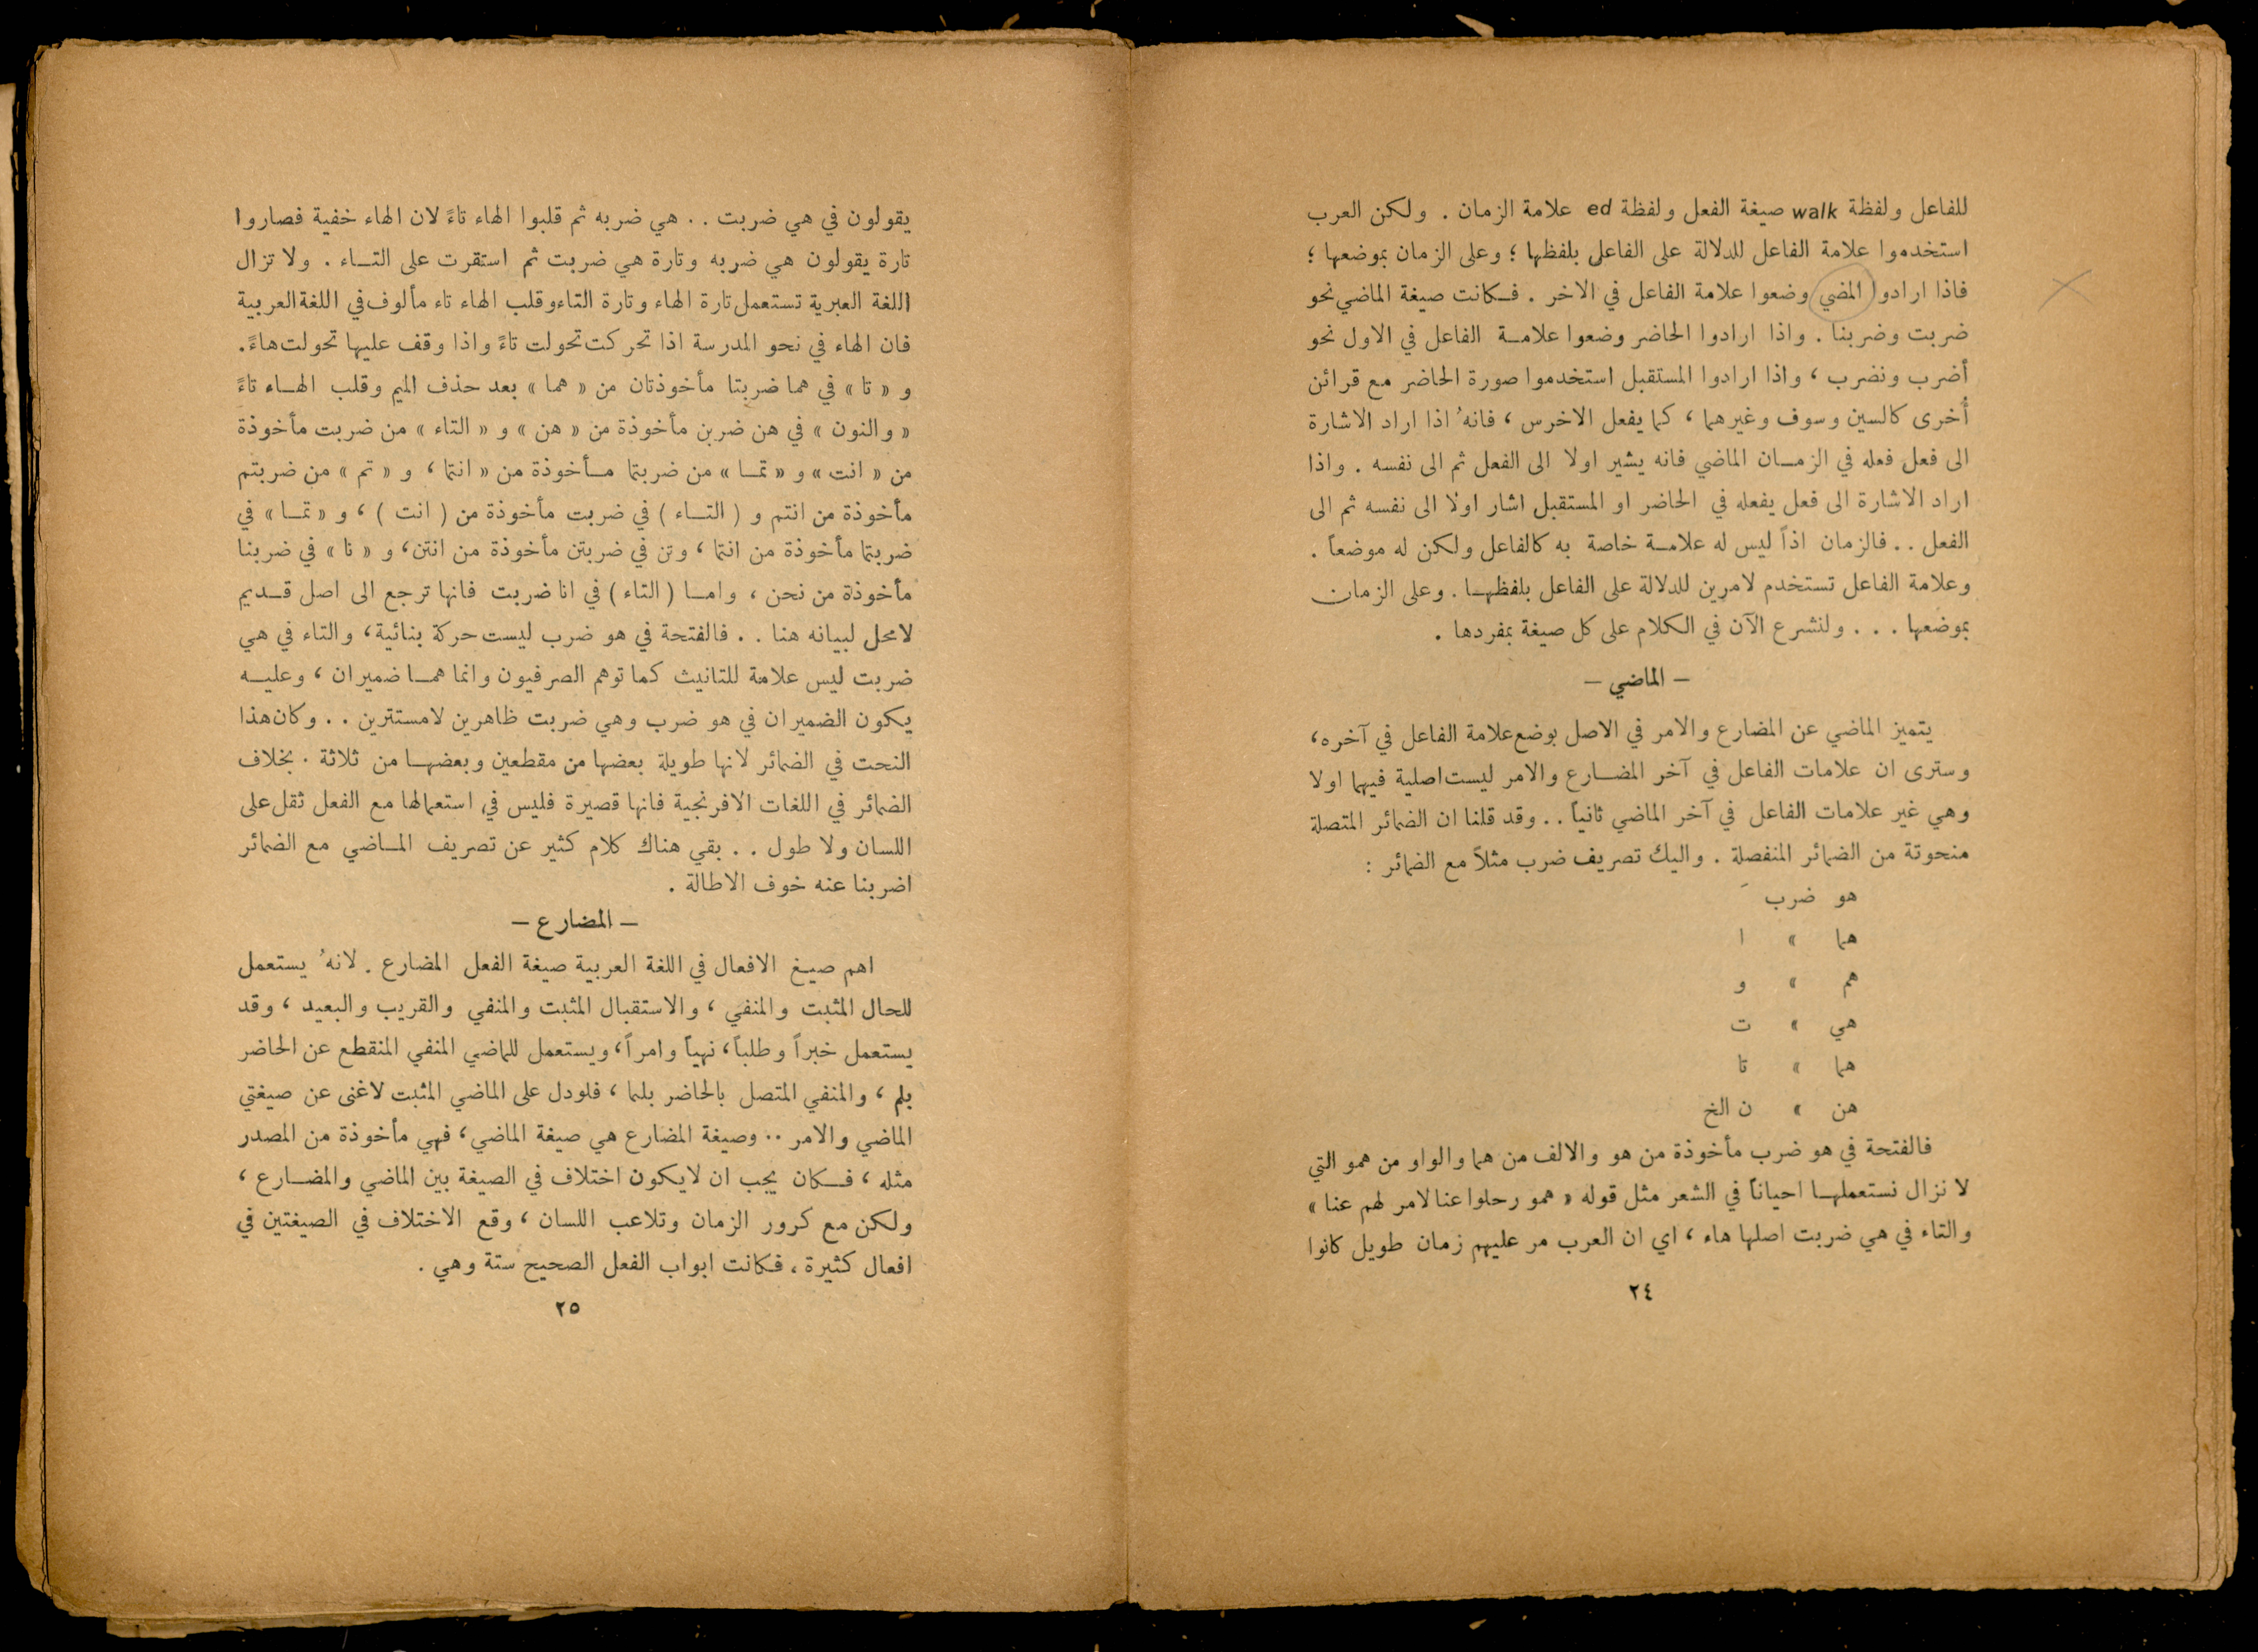 للفاعل ولفظة walk صيغة الفعل ولفظة ed علامة الزمان . ولكن العرب
استخدموا علامة الفاعل للدلالة على الفاعل بلفظها ؛ وعلى الزمان بموضعها ؛
فاذا ارادوا المضي وضعوا علامة الفاعل في الاخر . فكانت صيغة الماضي نحو
ضربت وضربنا . واذا ارادوا الحاضر وضعوا علامة الفاعل في الاول نحو
أضرب ونضرب ، واذا ارادوا المستقبل استخدموا صورة الحاضر مع قرائن
أُخرى كالسين وسوف وغيرهما ، كما يفعل الاخرس ، فانهُ اذا اراد الاشارة
الى فعل فعله في الزمان الماضي فانه يشير اولا الى الفعل ثم الى نفسه . واذا
اراد الاشارة الى فعل يفعله في الحاضر او المستقبل اشار اولا الى نفسه ثم الى
الفعل .. فالزمان اذاً ليس له علامة خاصة به كالفاعل ولكن له موضعاً .
وعلامة الفاعل تستخدم لامرين للدلالة على الفاعل بلفظها . وعلى الزمان
بموضعها . . . ولنشرع الآن في الكلام على كل صيغة بمفردها .
— الماضي —
يتميز الماضي عن المضارع والامر في الاصل بوضع علامة الفاعل في آخره ،
وسترى ان علامات الفاعل في آخر المضارع والامر ليست اصلية فيهما اولا
وهي غير علامات الفاعل في آخر الماضي ثانياً .. وقد قلنا ان الضمائر المتصلة
منحوتة من الضمائر المنفصلة . واليك تصريف ضرب مثلاً مع الضمائر :
هو ضربَ
هما » ا
هم » و
هي » ت
هما » تا
هن » ن الخ
فالفتحة في هو ضرب مأخوذة من هو والالف من هما والواو من همو التي
لا نزال نستعملها احياناً في الشعر مثل قوله « همو رحلوا عنا لامر لهم عنا »
والتاء في هي ضربت اصلها هاء ، اي ان العرب مر عليهم زمان طويل كانوا
٢٤
يقولون في هي ضربت .. هي ضربه ثم قلبوا الهاء تاءً لان الهاء خفية فصاروا
تارة يقولون هي ضربه وتارة هي ضربت ثم استقرت على التاء . ولا تزال
اللغة العبرية تستعمل تارة الهاء وتارة التاء وقلب الهاء تاء مألوف في اللغة العربية
فان الهاء في نحو المدرسة اذا تحركت تحولت تاءً واذا وقف عليها تحولت هاءً .
و « تا » في هما ضربتا مأخوذتان من « هما » بعد حذف الميم وقلب الهاء تاءً
« والنون » في هن ضربن مأخوذة من « هن » و « التاء » من ضربت مأخوذة
من « انت » و « تما » من ضربتما مأخوذة من « انتما ، و « تم » من ضربتم
مأخوذة من انتم و ( التاء ) في ضربت مأخوذة من ( انت ) ، و « تما » في
ضربتما مأخوذة من انتما ، وتن في ضربتن مأخوذة من انتن ، و « نا » في ضربنا
مأخوذة من نحن ، واما ( التاء ) في انا ضربت فانها ترجع الى اصل قديم
لا محل لبيانه هنا . . فالفتحة في هو ضرب ليست حركة بنائية ، والتاء في هي
ضربت ليس علامة للتانيث كما توهم الصرفيون وانما هما ضميران ، وعليه
يكون الضميران في هو ضرب وهي ضربت ظاهرين لا مستترين . . وكان هذا
النحت في الضمائر لانها طويلة بعضها من مقطعين وبعضها من ثلاثة . بخلاف
الضمائر في اللغات الافرنجية فانها قصيرة فليس في استعمالها مع الفعل ثقل على
اللسان ولا طول . . بقي هناك كلام كثير عن تصريف الماضي مع الضمائر
اضربنا عنه خوف الاطالة .
— المضارع —
اهم صيغ الافعال في اللغة العربية صيغة الفعل المضارع . لانهُ يستعمل
للحال المثبت والمنفي ، والاستقبال المثبت والمنفي والقريب والبعيد ، وقد
يستعمل خبراً وطلباً ، نهياً وامراً ، ويستعمل للماضي المنفي المنقطع عن الحاضر
بلم ، والمنفي المتصل بالحاضر بلما ، فلو دل على الماضي المثبت لاغنى عن صيغتي
الماضي والامر .. وصيغة المضارع هي صيغة الماضي ، فهي مأخوذة من المصدر
مثله ، فكان يجب ان لا يكون اختلاف في الصيغة بين الماضي والمضارع ،
ولكن مع كرور الزمان وتلاعب اللسان ، وقع الاختلاف في الصيغتين في
افعال كثيرة ، فكانت ابواب الفعل الصحيح ستة وهي .
٢٥